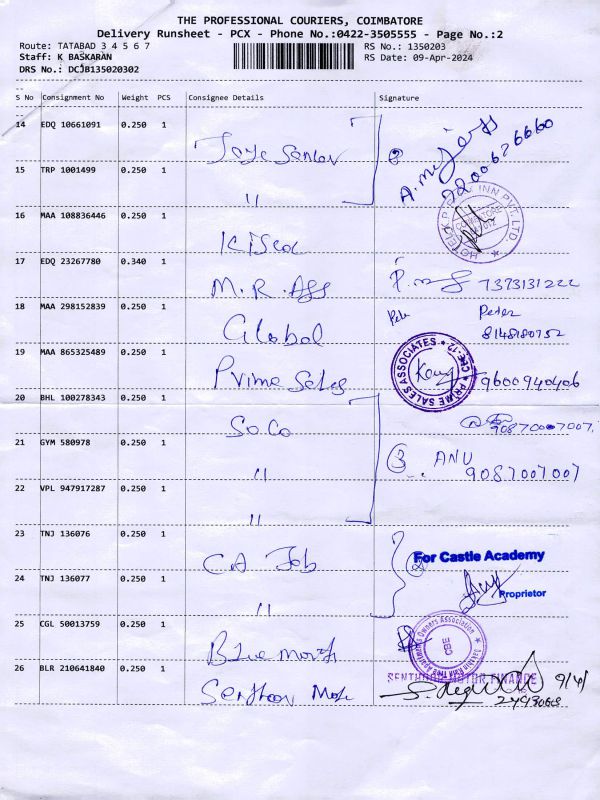 THE PROFESSIONAL COURIERS, COIMBATORE
Delivery Runsheet - PCX - Phone No.:0422-3505555 - Page No.:2
Route: TATABAD 3 4 5 6 7 RS No.: 1350203
Staff: K BASKARAN RS Date: 09-Apr-2024
DRS No.: DCJB135020302
S No Consignment No Weight PCS Consignee Details Signature
14 EDQ 10661091 0.250 1
15 TRP 1001499 0.250 1 "
16 MAA 108836446 0.250 1
17 EDQ 23267780 0.340 1 M.R. Ass 7373131222
18 MAA 298152839 0.250 1 Global Peter
8148180752
19 MAA 865325489 0.250 1 Prime Sales PRIME SALES ASSOCIATES 9600940406
20 BHL 100278343 0.250 1 So.Co
21 GYM 580978 0.250 1 " 3 ANU
9087007007
22 VPL 947917287 0.250 1 "
23 TNJ 136076 0.250 1 For Castle Academy
24 TNJ 136077 0.250 1 " Proprietor
25 CGL 50013759 0.250 1 Owners Association
26 BLR 210641840 0.250 1 SENTHOOR MOTOR FINANCE 9/4/